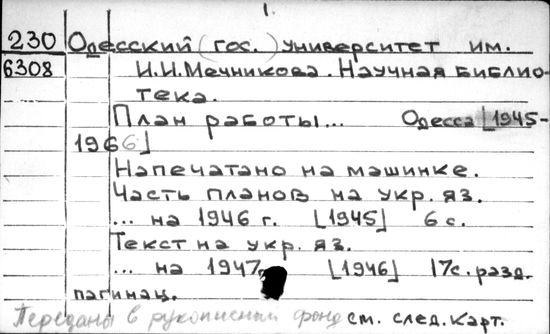 1.
230 Одесский (гос.) университет им.
6308 И.И.Мечникова. Научная библио-
тека.
План работы... Одесса [1945-
1966]
Напечатано на машинке.
Часть планов на укр. яз.
... на 1946 г. [1945] 6 с.
Текст на укр. яз.
... на 1947 [1946] 17с. разд.
пагинац.
Переданы в рукописный фонд см. след. карт.